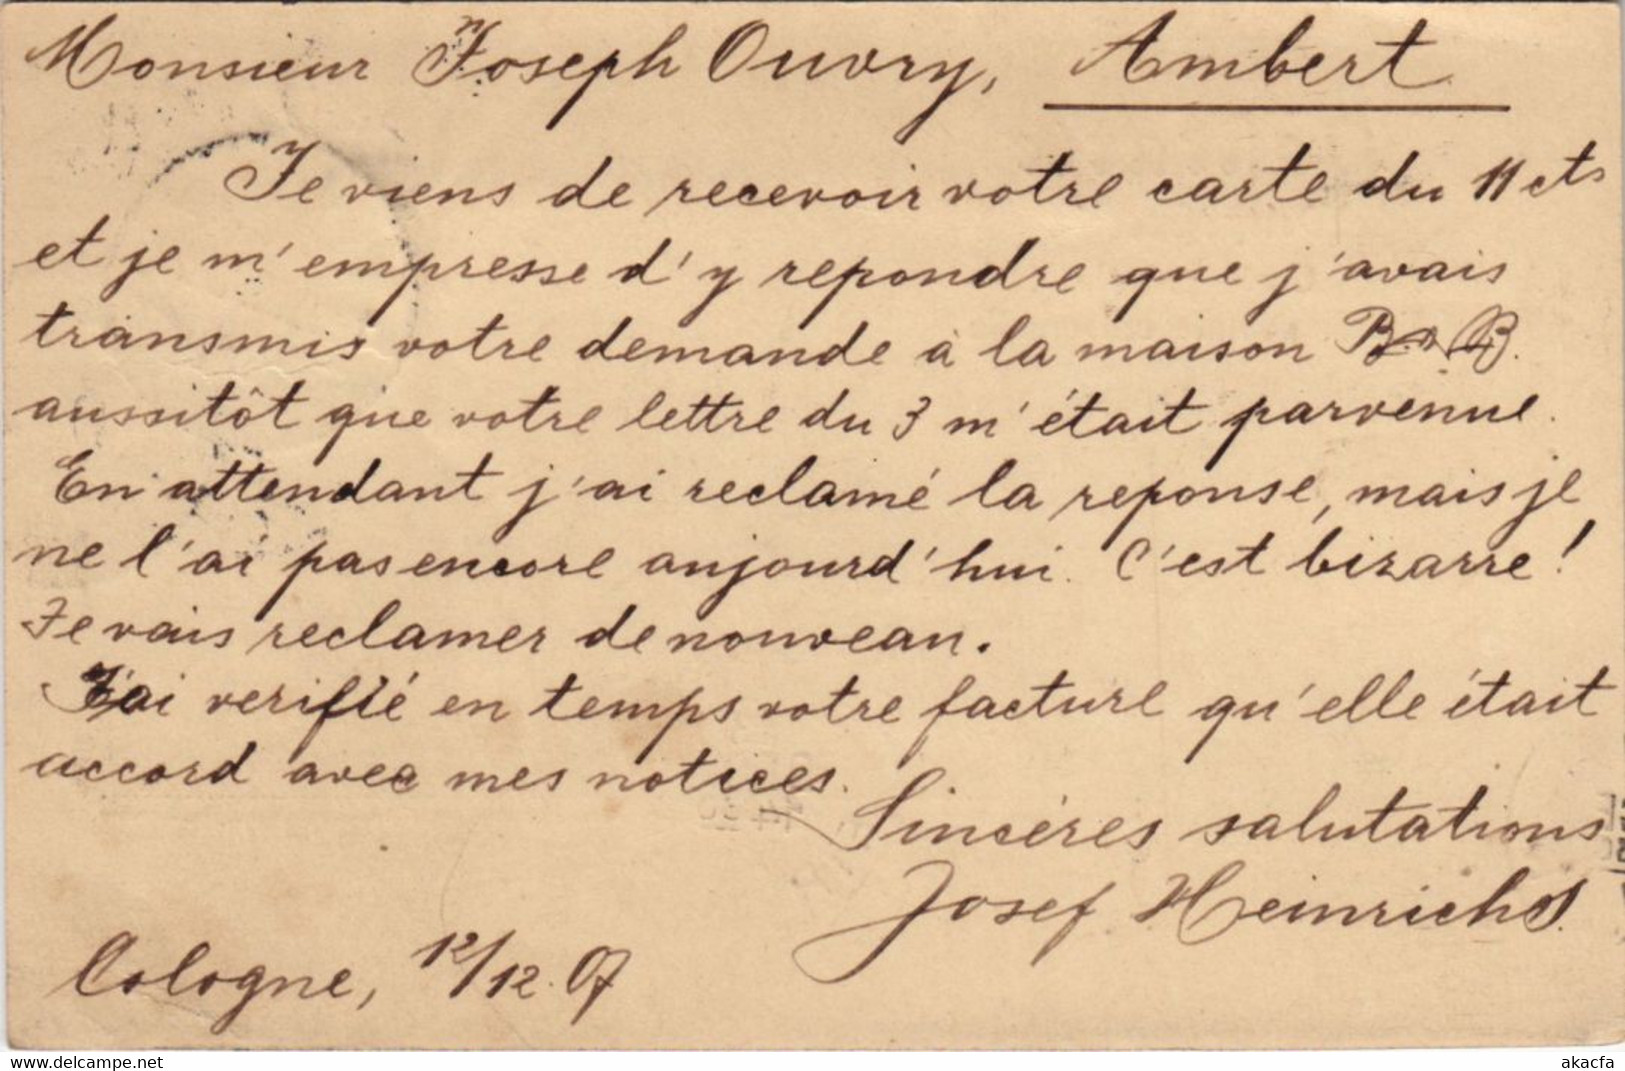 Monsieur Joseph Ouvry, Ambert
Je viens de recevoir votre carte du 11 cts
et je m'empresse d'y repondre que j'avais
transmis votre demande à la maison B. & B.
aussitôt que votre lettre du 3 m'était parvenue.
En attendant j'ai reclamé la reponse, mais je
ne l'ai pas encore aujourd'hui. C'est bizarre!
Je vais reclamer de nouveau.
J'ai verifié en temps votre facture qu'elle était
accord avec mes notices.
Sincéres salutations
Josef Heinrichs.
Cologne, 12/12.07
delcampe.net
akacfa